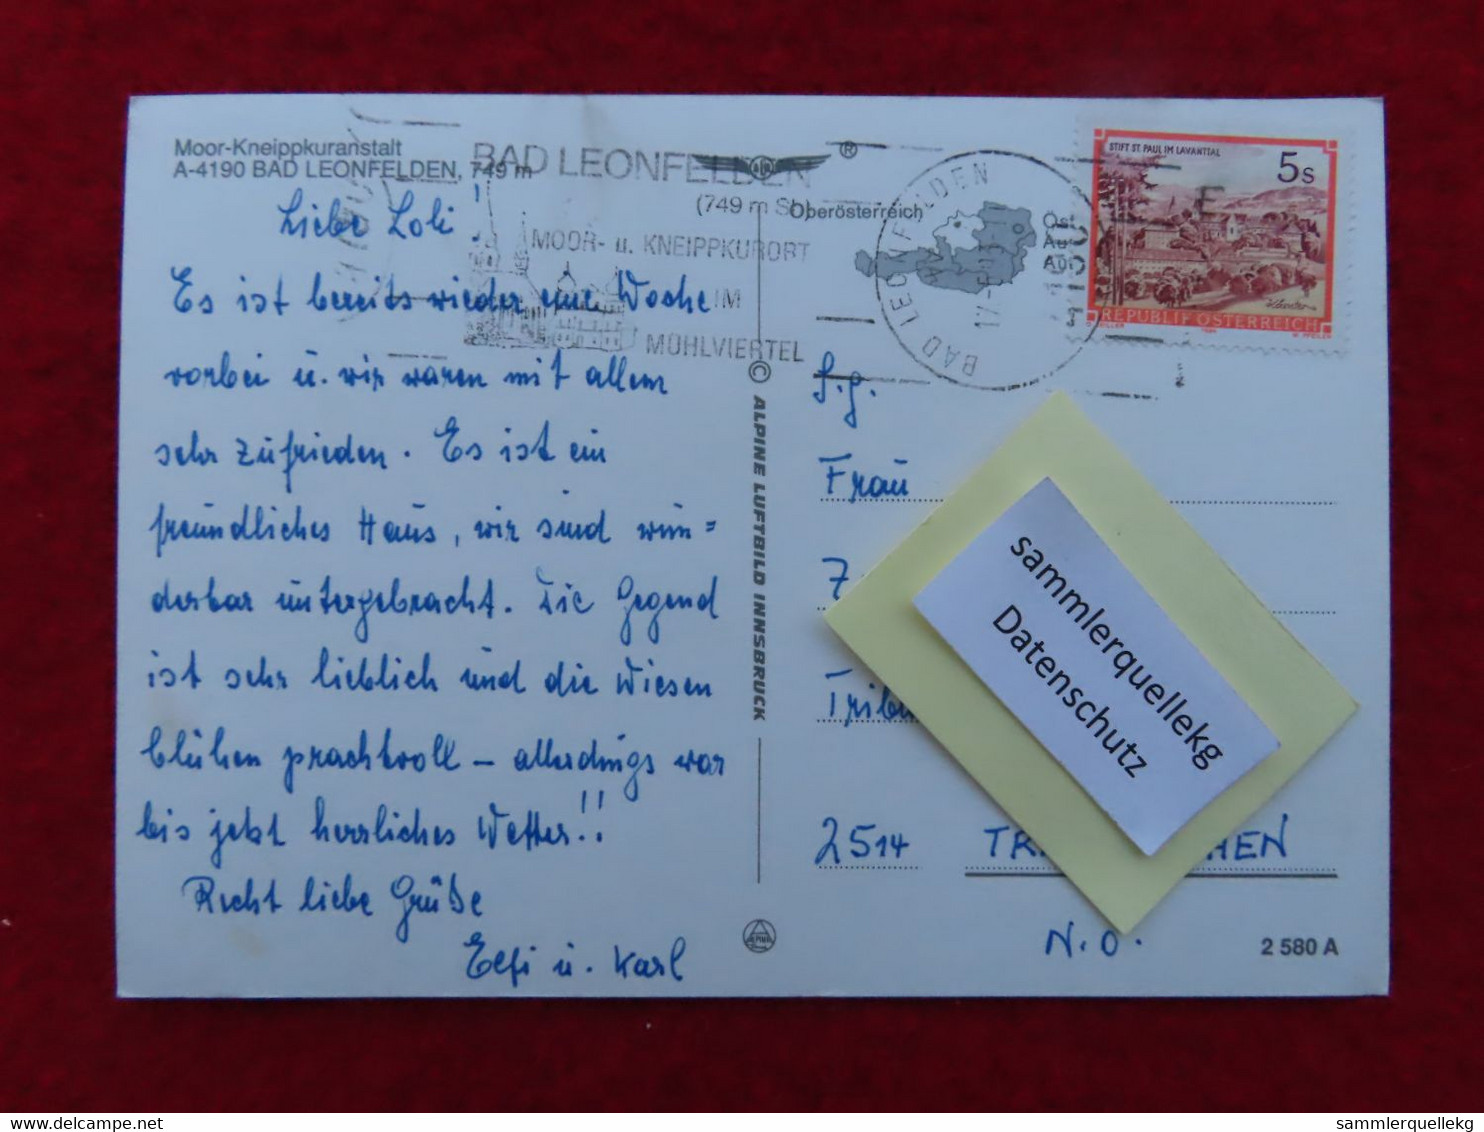 Moor-Kneippkuranstalt
A-4190 BAD LEONFELDEN, 749 m
BAD LEONFELDEN
(749 m
MOOR- u. KNEIPPKURORT
IM
MÜHLVIERTEL
Oberösterreich
BAD LEONFELDEN
STIFT ST. PAUL IM LAVANTTAL
5 S
REPUBLIK ÖSTERREICH
Liebe Loli!
Es ist bereits wieder eine Woche
vorbei u. wir waren mit allem
sehr zufrieden. Es ist ein
freundliches Haus, wir sind wun=
derbar untergebracht. Die Gegend
ist sehr lieblich und die Wiesen
blühen prachtvoll – allerdings war
bis jetzt herrliches Wetter!!
Recht liebe Grüße
Elfi u. Karl
© ALPINE LUFTBILD INNSBRUCK
ALPINE
S.g.
Frau
7
Tribu
2514 TR HEN
N.Ö.
2 580 A
sammlerquellekg
Datenschutz
delcampe.net
sammlerquellekg